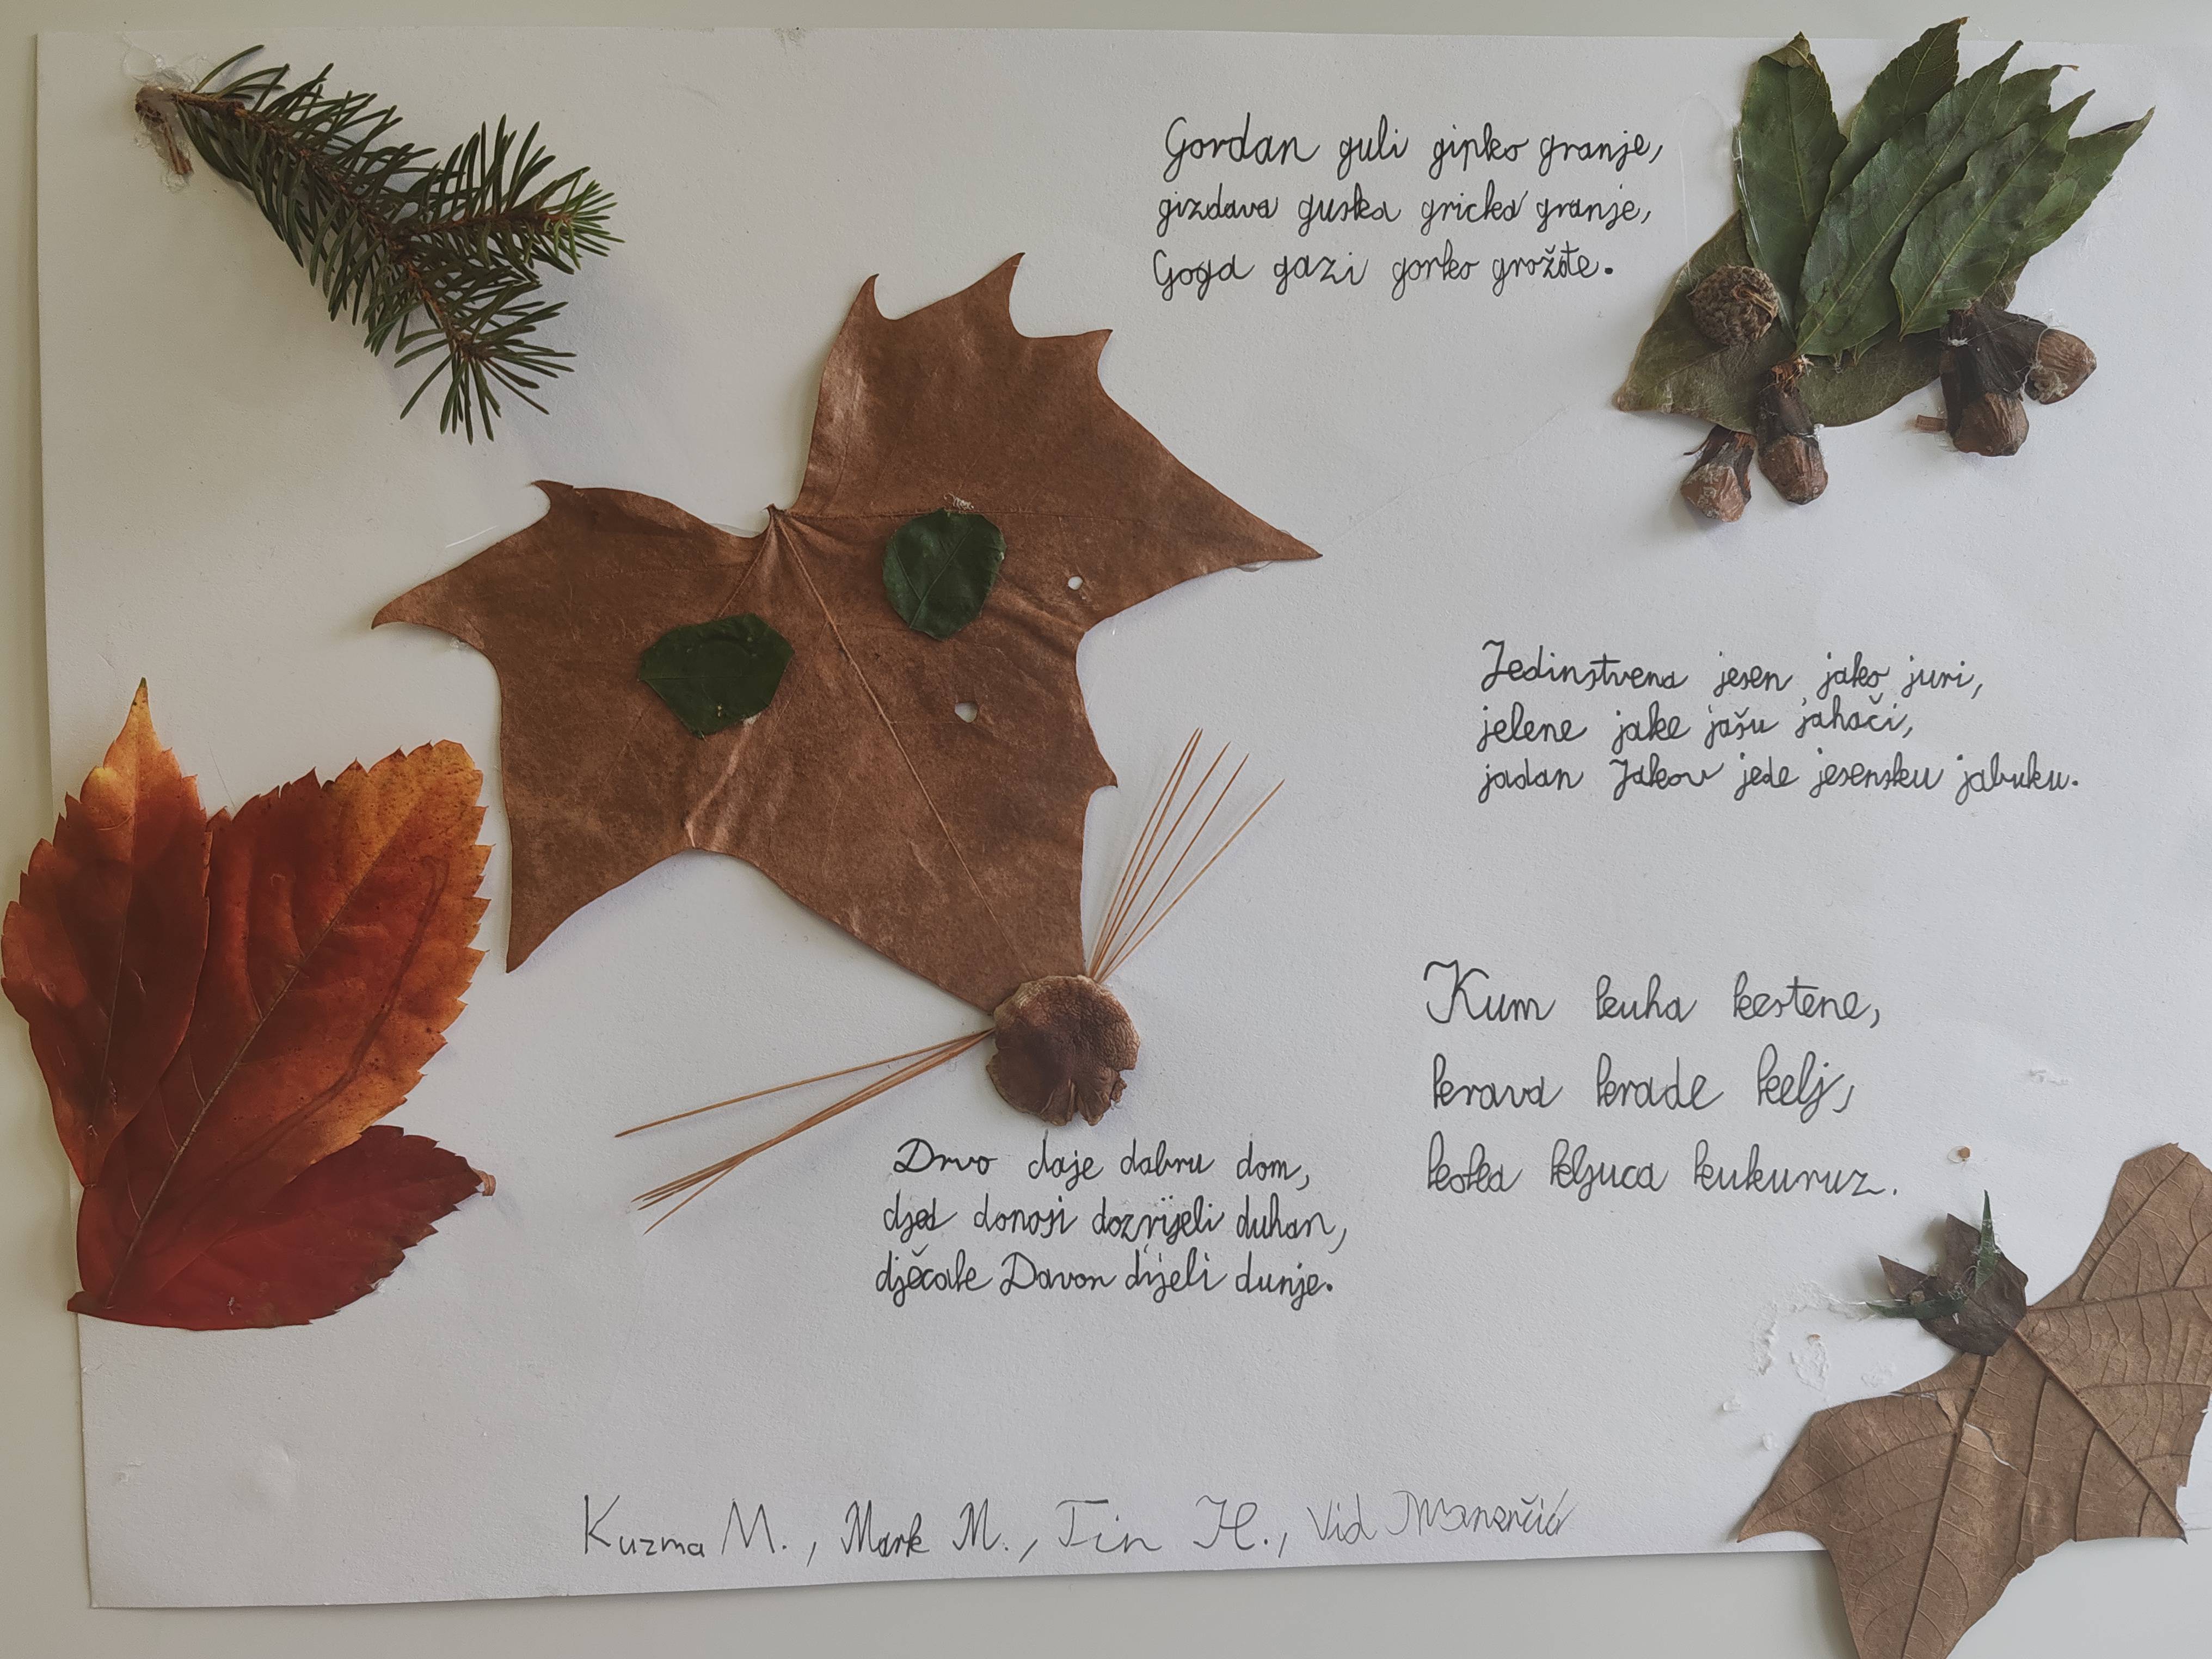 Gordan guli gipko granje,
gizdava guska gricka granje,
Goga gazi gorko grožđe.
Jedinstvena jesen jako juri,
jelene jake jašu jahači,
jadan Jakov jede jesensku jabuku.
Kum kuha kestene,
krava krade kelj,
koka kljuca kukuruz.
Drvo daje dabru dom,
djed donosi dozrijeli duhan,
dječak Davor dijeli dunje.
Kuzma M., Mark M., Tin H., Vid